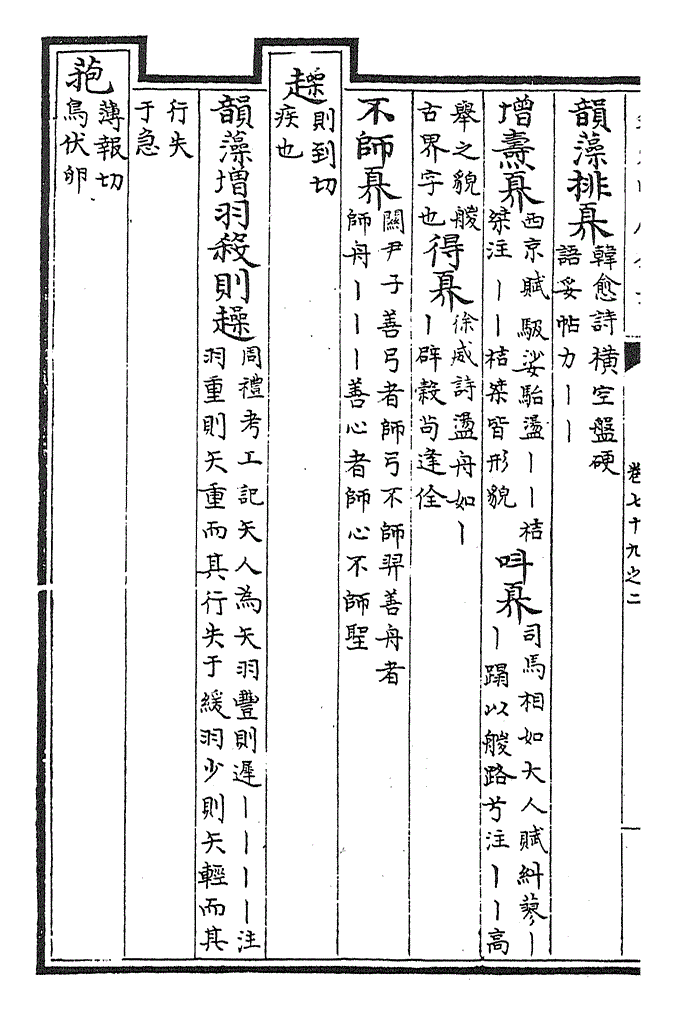 卷七十九之二
韻藻排奡
韓愈詩橫空盤硬
語妥帖力丨丨
增壽奡
西京賦駊娑駘盪丨丨桔
桀注丨丨桔桀皆形貌
叫奡
司馬相如大人賦糾蓼丨
丨蹋以艐路兮注丨丨高
舉之貌艐
古界字也
得奡
徐威詩盪舟如丨
丨辟穀茍逢佺
不師奡
關尹子善弓者師弓不師羿善舟者
師舟丨丨丨善心者師心不師聖
趮
則到切
疾也
韻藻增羽殺則趮
周禮考工記矢人為矢羽豐則遲丨丨丨丨注
羽重則矢重而其行失于緩羽少則矢輕而其
行失
于急
菢
薄報切
鳥伏卵